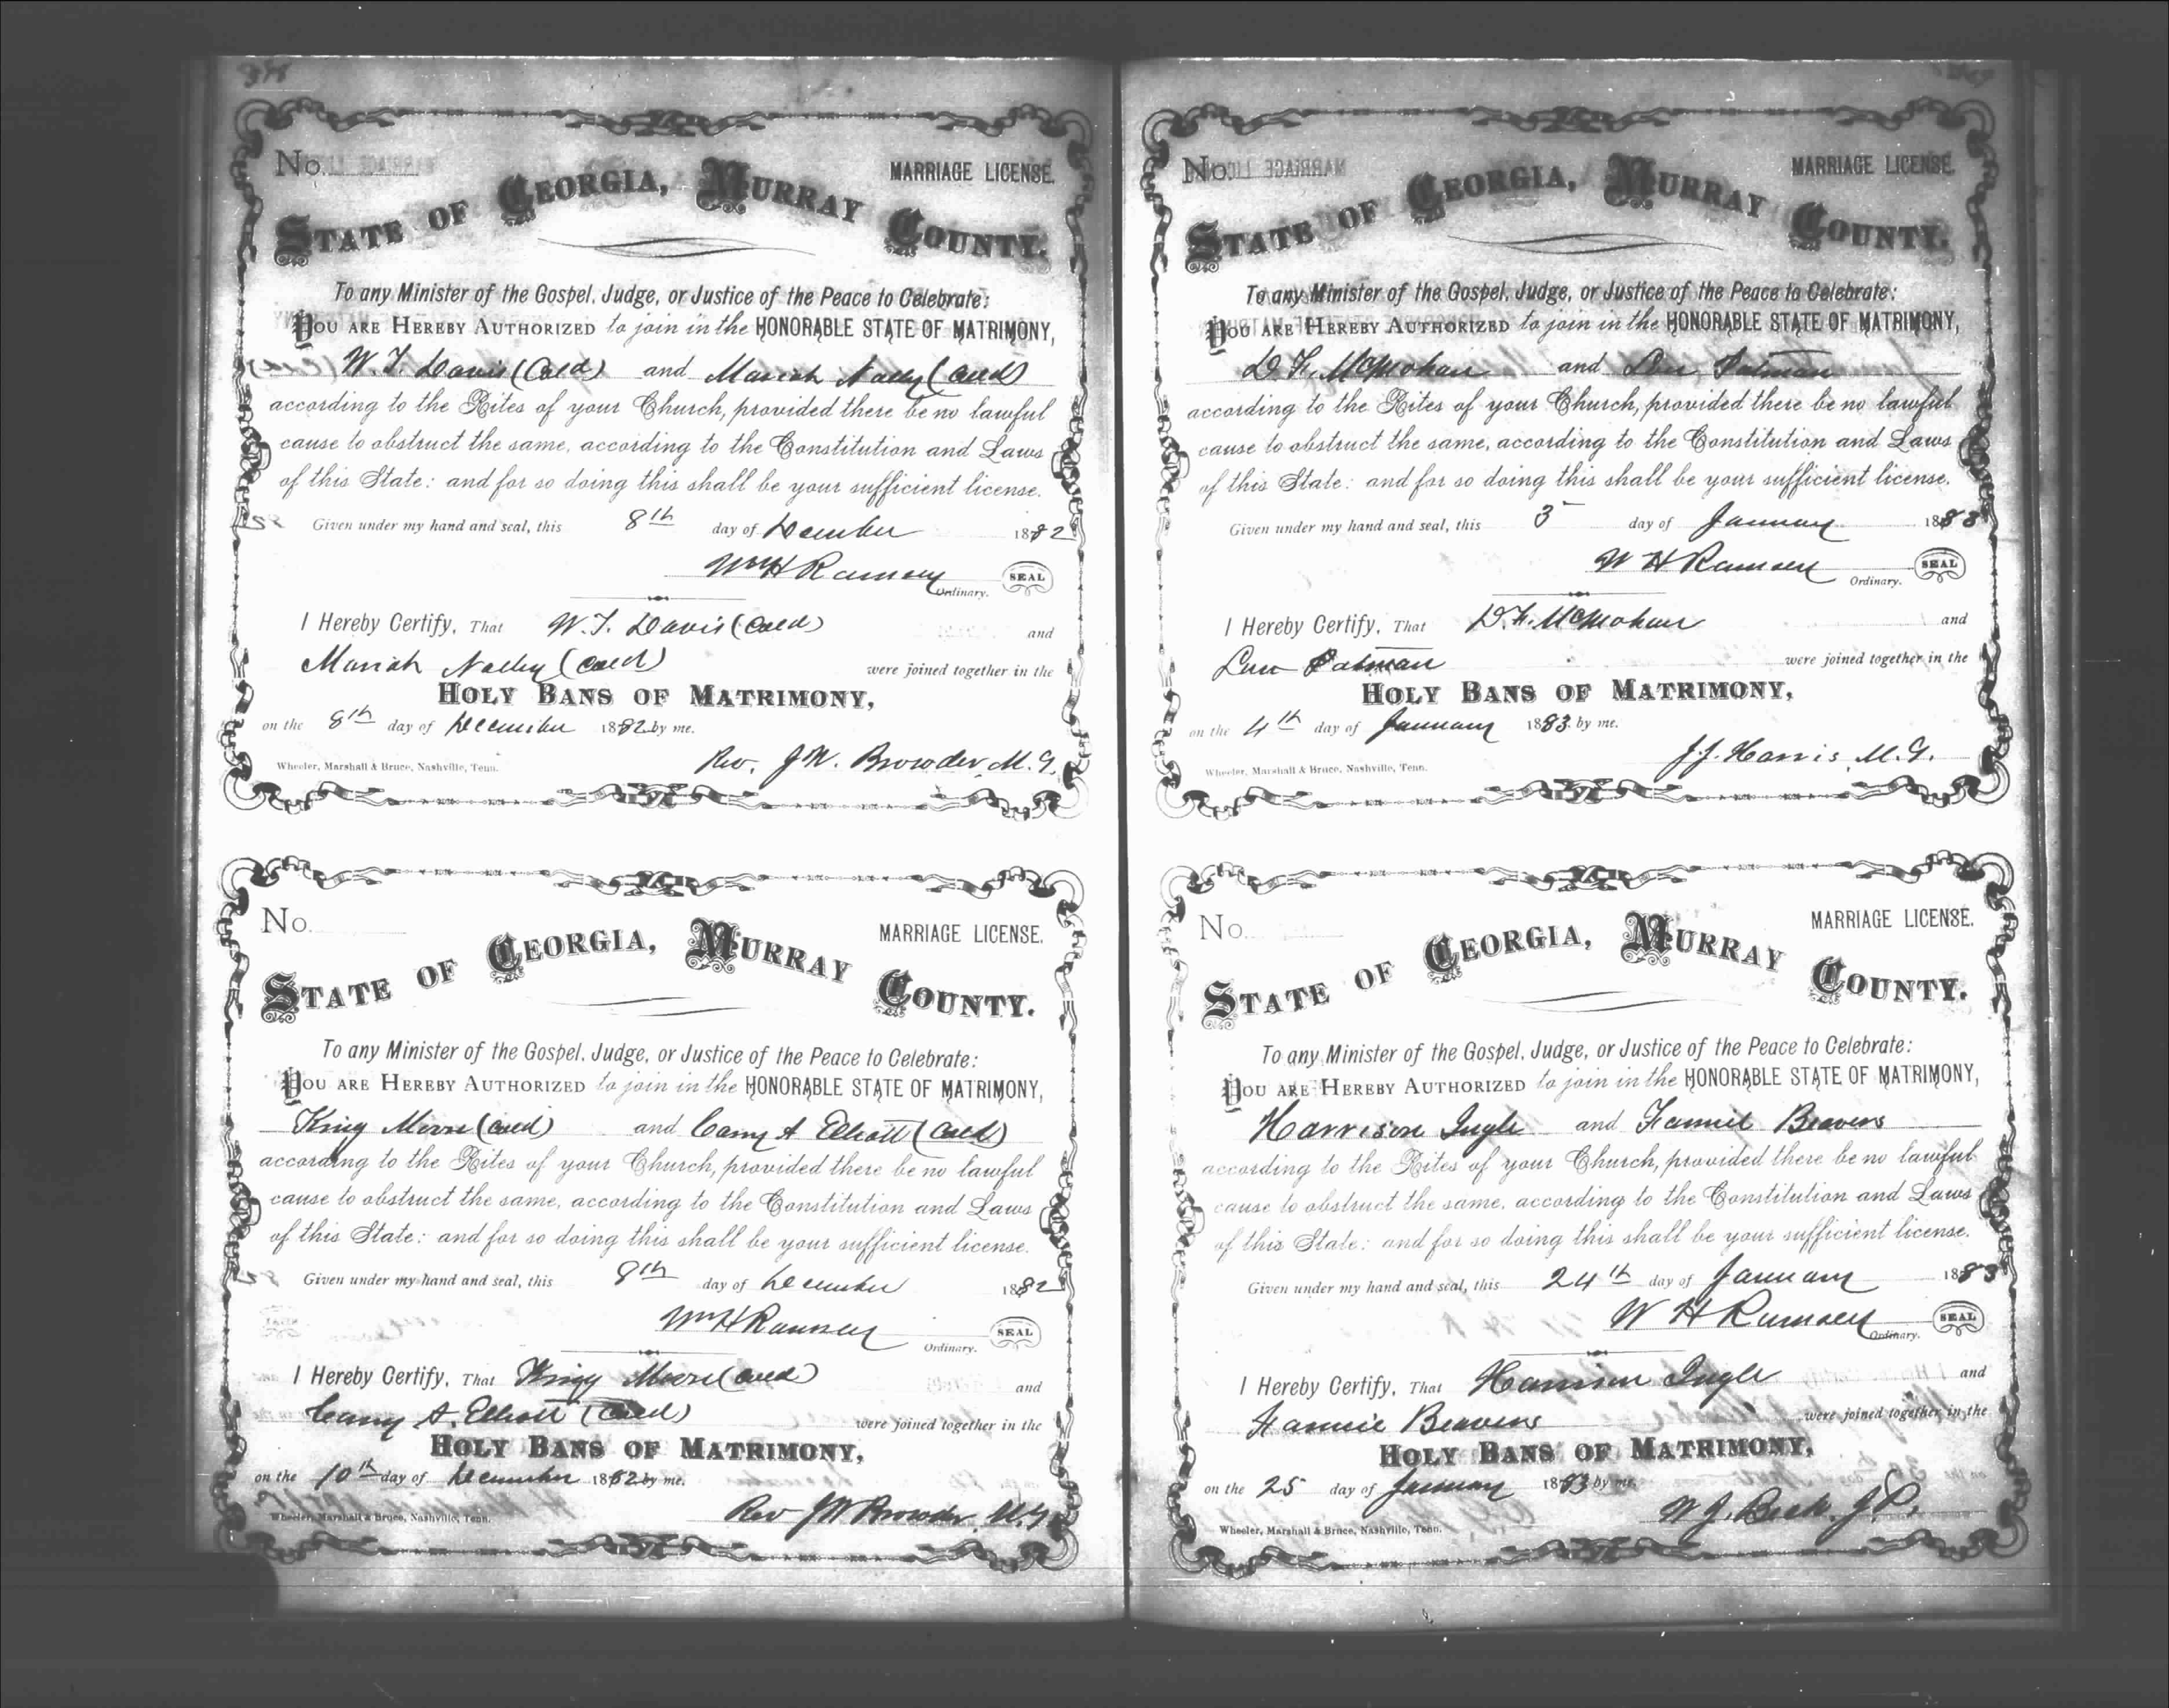 No.
MARRIAGE LICENSE.
STATE OF GEORGIA, MURRAY COUNTY.
To any Minister of the Gospel, Judge, or Justice of the Peace to Celebrate:
YOU ARE HEREBY AUTHORIZED to join in the HONORABLE STATE OF MATRIMONY,
W. T. Davis (Cold) and Mariah Nalley (Cold)
according to the Rites of your Church, provided there be no lawful
cause to obstruct the same, according to the Constitution and Laws
of this State: and for so doing this shall be your sufficient license.
Given under my hand and seal, this 8th day of Dcember 1882
Wm H Ramsey SEAL
Ordinary.
I Hereby Certify, That W. T. Davis (Cold) and
Mariah Nalley (Cold) were joined together in the
HOLY BANS OF MATRIMONY,
on the 8th day of December 1882 by me.
Rev. J. W. Browder, M. G.
Wheeler, Marshall & Bruce, Nashville, Tenn.
No.
MARRIAGE LICENSE.
STATE OF GEORGIA, MURRAY COUNTY.
To any Minister of the Gospel, Judge, or Justice of the Peace to Celebrate:
YOU ARE HEREBY AUTHORIZED to join in the HONORABLE STATE OF MATRIMONY,
King Moore (Cold) and A Elliott (Cold)
according to the Rites of your Church, provided there be no lawful
cause to obstruct the same, according to the Constitution and Laws
of this State: and for so doing this shall be your sufficient license.
Given under my hand and seal, this 8th day of December 1882
Wm H Ramsey SEAL
Ordinary.
I Hereby Certify, That King Moore (Cold) and
A. Elliott (Cold) were joined together in the
HOLY BANS OF MATRIMONY,
on the 10th day of December 1882 by me.
Rev J W Browder, M. G
Wheeler, Marshall & Bruce, Nashville, Tenn.
No.
MARRIAGE LICENSE.
STATE OF GEORGIA, MURRAY COUNTY.
To any Minister of the Gospel, Judge, or Justice of the Peace to Celebrate:
YOU ARE HEREBY AUTHORIZED to join in the HONORABLE STATE OF MATRIMONY,
D. F. McMohan and Lou Patman
according to the Rites of your Church, provided there be no lawful
cause to obstruct the same, according to the Constitution and Laws
of this State: and for so doing this shall be your sufficient license.
Given under my hand and seal, this 3 day of January 1883
W H Ramsey SEAL
Ordinary.
I Hereby Certify, That D. F. McMohan and
Lou Patman were joined together in the
HOLY BANS OF MATRIMONY,
on the 4th day of January 1883 by me.
J. J. Harris, M. G.
Wheeler, Marshall & Bruce, Nashville, Tenn.
No.
MARRIAGE LICENSE.
STATE OF GEORGIA, MURRAY COUNTY.
To any Minister of the Gospel, Judge, or Justice of the Peace to Celebrate:
YOU ARE HEREBY AUTHORIZED to join in the HONORABLE STATE OF MATRIMONY,
Harrison Ingle and Fannie Beavers
according to the Rites of your Church, provided there be no lawful
cause to obstruct the same, according to the Constitution and Laws
of this State: and for so doing this shall be your sufficient license.
Given under my hand and seal, this 24th day of January 1883
W H Ramsey SEAL
Ordinary.
I Hereby Certify, That Harrison Ingle and
Fannie Beavers were joined together in the
HOLY BANS OF MATRIMONY,
on the 25 day of January 1883 by me.
W. J. Beck, J. P.
Wheeler, Marshall & Bruce, Nashville, Tenn.